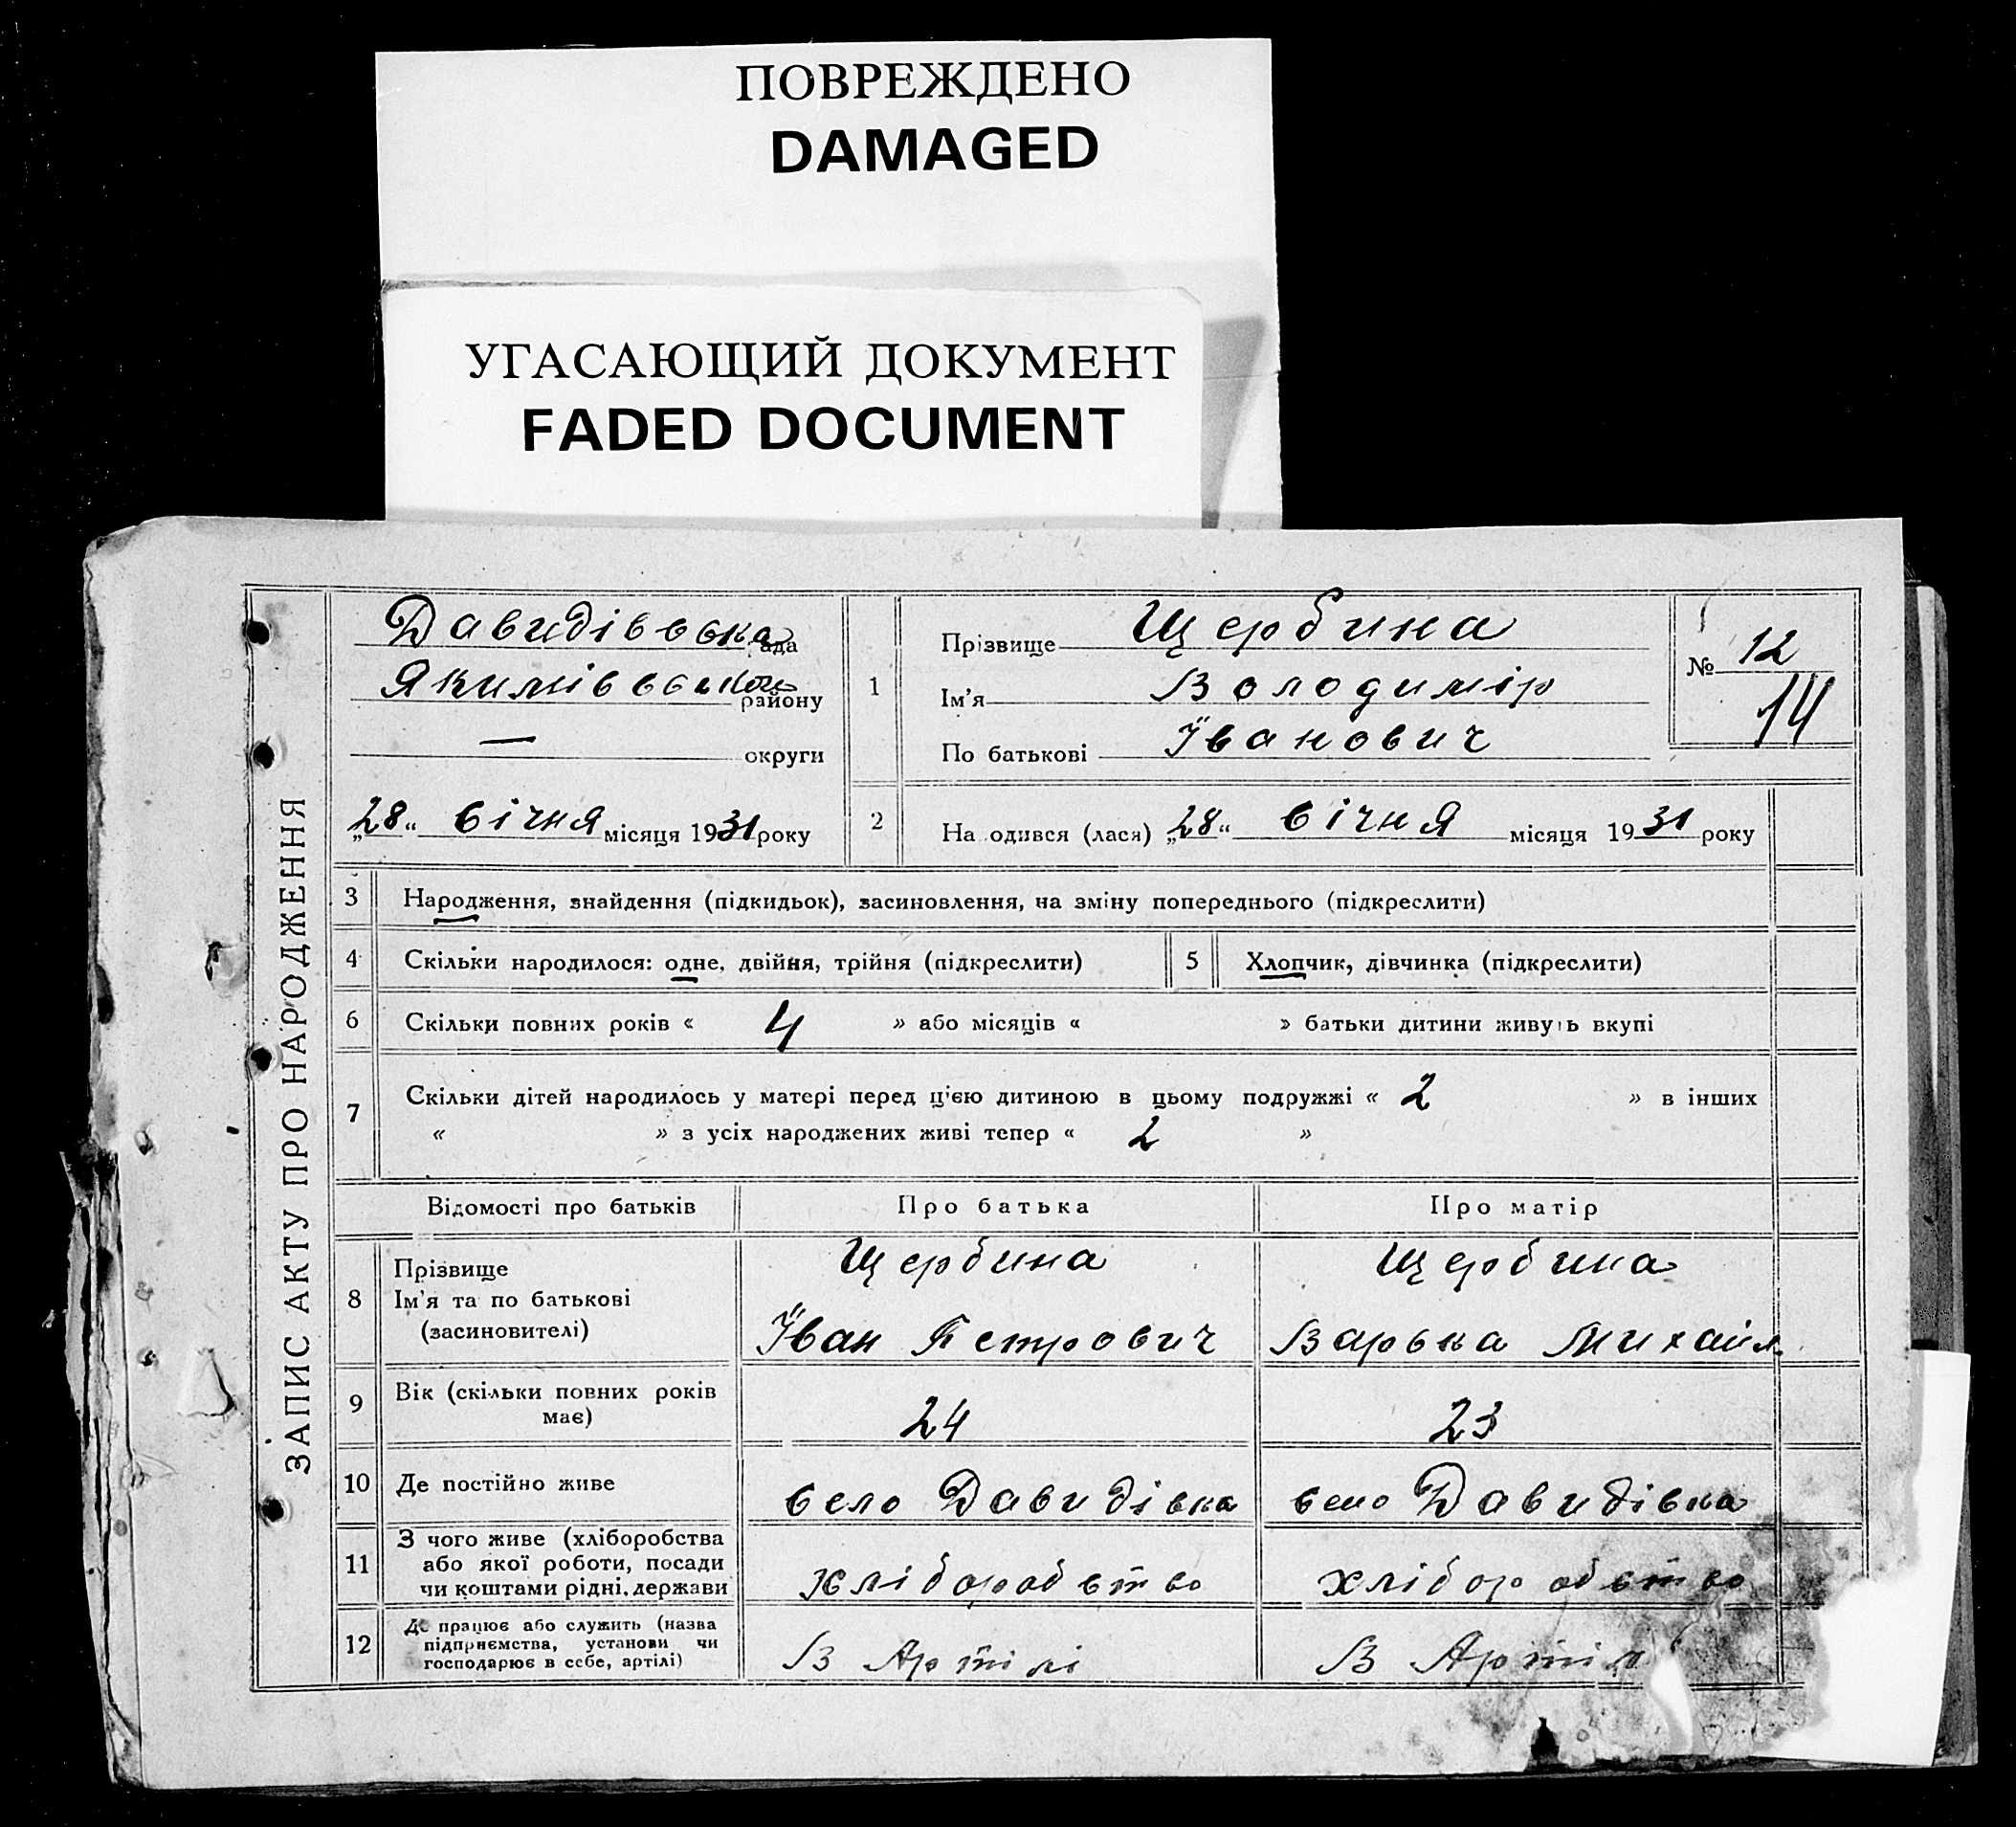 ПОВРЕЖДЕНО
DAMAGED
УГАСАЮЩИЙ ДОКУМЕНТ
FADED DOCUMENT
ЗАПИС АКТУ ПРО НАРОДЖЕННЯ
Давидівська рада
Якимівського району
— округи
„28“ січня місяця 1931 року
1
Прізвище Щербина
Ім’я Володимір
По батькові Їванович
№ 12
14
2 На одився (лася) „28“ січня місяця 1931 року
3 Народження, знайдення (підкидьок), засиновлення, на зміну попереднього (підкреслити)
4 Скільки народилося: одне, двійня, трійня (підкреслити) 5 Хлопчик, дівчинка (підкреслити)
6 Скільки повних років « 4 » або місяців « » батьки дитини живуть вкупі
7 Скільки дітей народилось у матері перед ц’єю дитиною в цьому подружжі « 2 » в інших
« » з усіх народжених живі тепер « 2 »
Відомості про батьків Про батька Про матір
8 Прізвище Щербина Щербина
Ім’я та по батькові
(засиновителі) Їван Петрович Варька Михайл.
9 Вік (скільки повних років
має) 24 23
10 Де постійно живе село Давидівка село Давидівка
11 З чого живе (хліборобства
або якої роботи, посади
чи коштами рідні, держави хліборобство хліборобство
12 Де працює або служить (назва
підприємства, установи чи
господарює в себе, артілі) В Артілі В Артіл